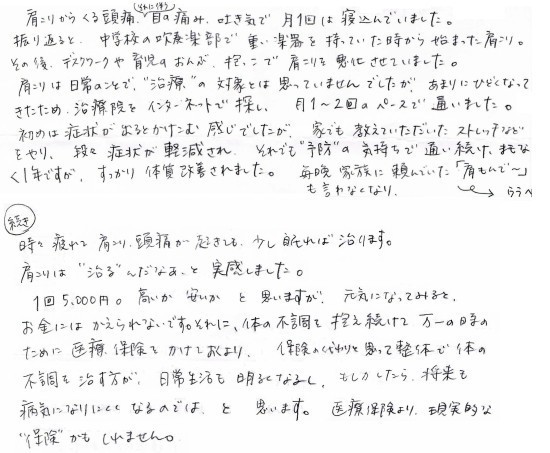 肩こりからくる頭痛、それに伴う目の痛み、吐き気で月1回は寝込んでいました。
振り返ると、中学校の吹奏楽部で重い楽器を持っていた時から始まった肩こり。
その後、デスクワークや育児のおんぶ、抱っこで肩こりを悪化させていました。
肩こりは日常のことで、"治療"の対象とは思っていませんでしたが、あまりにひどくなって
きたため、治療院をインターネットで探し、月1~2回のペースで通いました。
初めは症状が出るとかけこむ感じでしたが、家でも教えていただいたストレッチなど
をやり、段々症状が軽減され、それでも"予防"の気持ちで通い続け、まもな
く1年ですが、すっかり体質改善されました。毎晩家族に頼んでいた「肩もんで~」
も言わなくなり、
続き
時々疲れて肩こり、頭痛が起きても、少し眠れば治ります。
肩こりは"治る"んだなあ、と実感しました。
1回5,000円。高いか安いかと思いますが、元気になってみると、
お金にはかえられないです。それに、体の不調を抱え続けて万一の時の
ために医療保険をかけておくより、保険の代わりと思って整体で体の
不調を治す方が、日常生活も明るくなるし、もしかしたら、将来も
病気になりにくくなるのでは、と思います。医療保険より、現実的な
"保険"かもしれません。